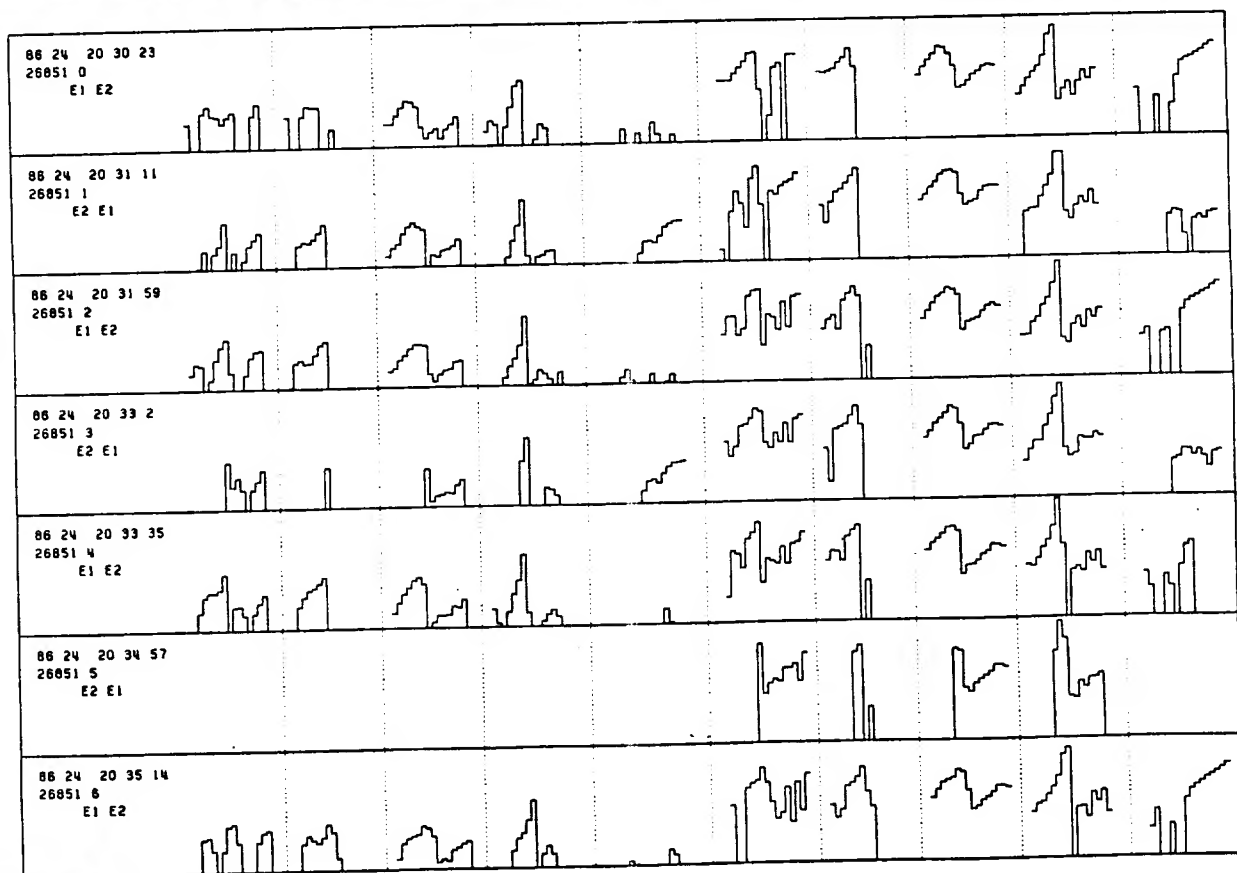 86 24 20 30 23
26851 0
E1 E2
86 24 20 31 11
26851 1
E2 E1
86 24 20 31 59
26851 2
E1 E2
86 24 20 33 2
26851 3
E2 E1
86 24 20 33 35
26851 4
E1 E2
86 24 20 34 57
26851 5
E2 E1
86 24 20 35 14
26851 6
E1 E2